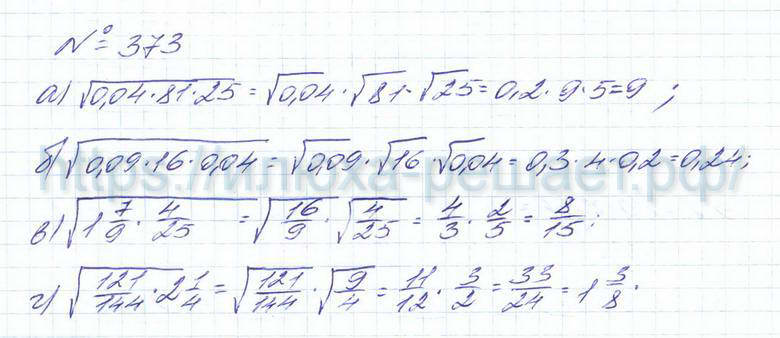 № 373
а) √0,04·81·25 = √0,04 · √81 · √25 = 0,2 · 9 · 5 = 9 ;
б) √0,09·16·0,04 = √0,09 · √16 · √0,04 = 0,3 · 4 · 0,2 = 0,24;
https://илюха-решает.рф/
в) √1 7/9 · 4/25 = √16/9 · √4/25 = 4/3 · 2/5 = 8/15 ;
г) √121/144 · 2 1/4 = √121/144 · √9/4 = 11/12 · 3/2 = 33/24 = 1 3/8 .